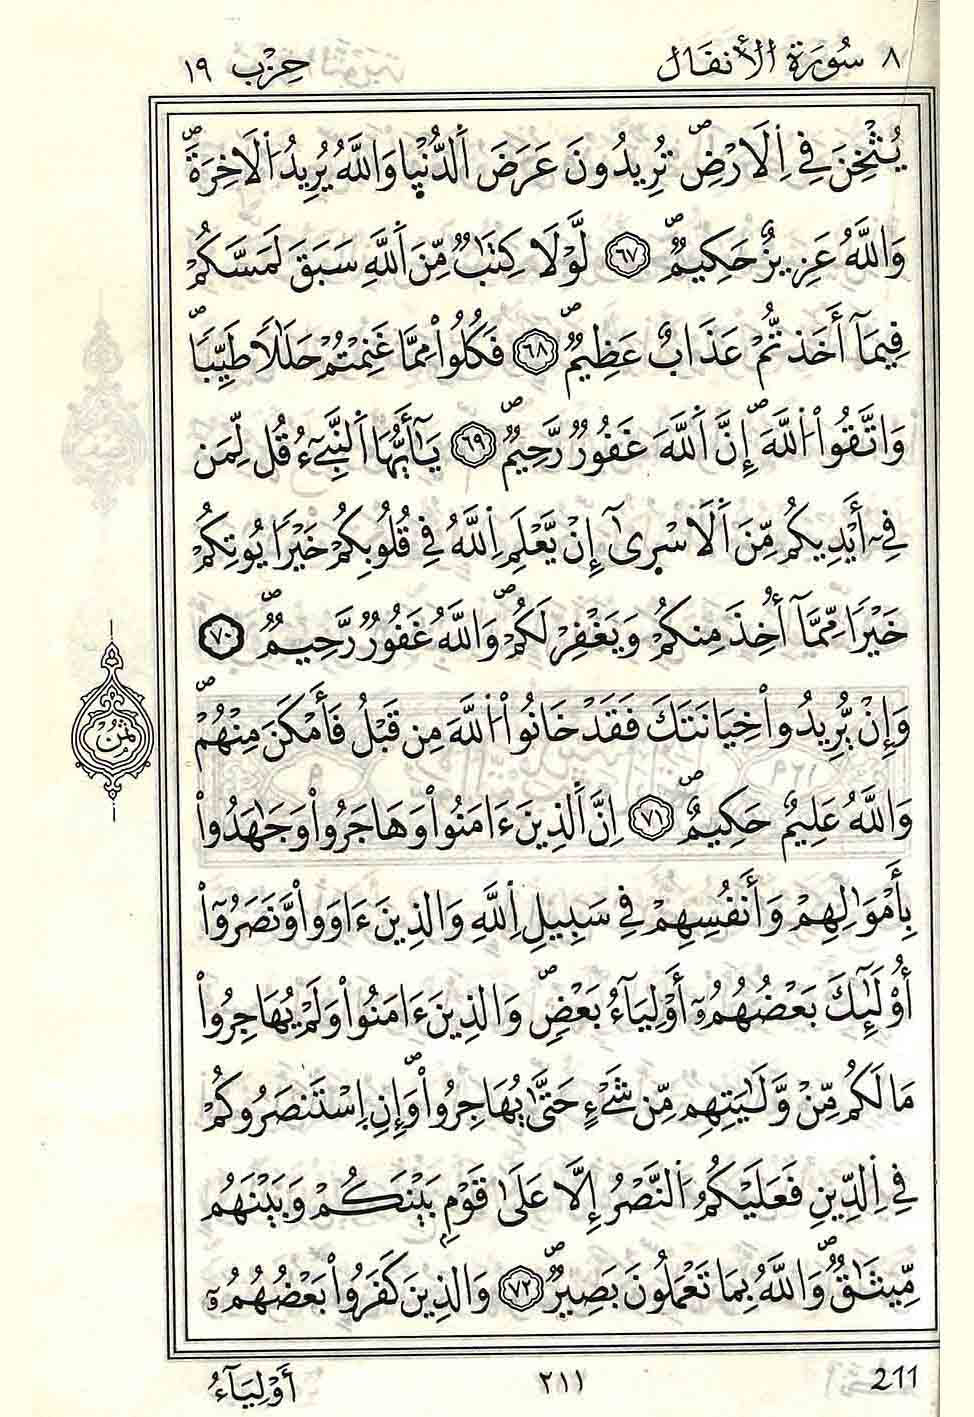 ٨ سُورَةُ الْأَنفَالِ حِزْب ١٩
يُثْخِنَ فِي اِ۬لَارْضِۖ تُرِيدُونَ عَرَضَ اَ۬لدُّنْي۪ا وَاللَّهُ يُرِيدُ اُ۬لَاخِرَةَۖ
وَاللَّهُ عَزِيزٌ حَكِيمٌۖ ٦٧ لَّوْلَا كِتَٰبٌ مِّنَ اَ۬للَّهِ سَبَقَ لَمَسَّكُمْ
فِيمَآ أَخَذتُّمْ عَذَابٌ عَظِيمٌۖ ٦٨ فَكُلُواْ مِمَّا غَنِمْتُمْ حَلَٰلاً طَيِّباًۖ
وَاتَّقُواْ اُ۬للَّهَۖ إِنَّ اَ۬للَّهَ غَفُورٌ رَّحِيمٌۖ ٦٩ يَٰٓأَيُّهَا اَ۬لنَّبِےٓءُ قُل لِّمَن
فِےٓ أَيْدِيكُم مِّنَ اَ۬لَاسْر۪ىٰٓ إِنْ يَّعْلَمِ اِ۬للَّهُ فِي قُلُوبِكُمْ خَيْراً يُوتِكُمْ
خَيْراً مِّمَّآ أُخِذَ مِنكُمْ وَيَغْفِرْ لَكُمْۖ وَاللَّهُ غَفُورٌ رَّحِيمٌۖ ٧٠
وَإِنْ يُّرِيدُواْ خِيَانَتَكَ فَقَدْ خَانُواْ اُ۬للَّهَ مِن قَبْلُ فَأَمْكَنَ مِنْهُمْۖ
وَاللَّهُ عَلِيمٌ حَكِيمٌۖ ٧١ اِنَّ اَ۬لذِينَ ءَامَنُواْ وَهَاجَرُواْ وَجَٰهَدُواْ
ثُمُن
بِأَمْوَٰلِهِمْ وَأَنفُسِهِمْ فِي سَبِيلِ اِ۬للَّهِ وَالذِينَ ءَاوَواْ وَّنَصَرُوٓاْ
أُوْلَٰٓئِكَ بَعْضُهُمُۥٓ أَوْلِيَآءُ بَعْضٖۖ وَالذِينَ ءَامَنُواْ وَلَمْ يُهَاجِرُواْ
مَا لَكُم مِّنْ وَّلَٰيَتِهِم مِّن شَےْءٍ حَتَّىٰ يُهَاجِرُواْۖ وَإِنِ اِ۪سْتَنصَرُوكُمْ
فِي اِ۬لدِّينِ فَعَلَيْكُمُ اُ۬لنَّصْرُ إِلَّا عَلَىٰ قَوْمِۢ بَيْنَكُمْ وَبَيْنَهُم
مِّيثَٰقٌۖ وَاللَّهُ بِمَا تَعْمَلُونَ بَصِيرٌۖ ٧٢ وَالذِينَ كَفَرُواْ بَعْضُهُمُۥٓ
أَوْلِيَآءُ ٢١١ 211